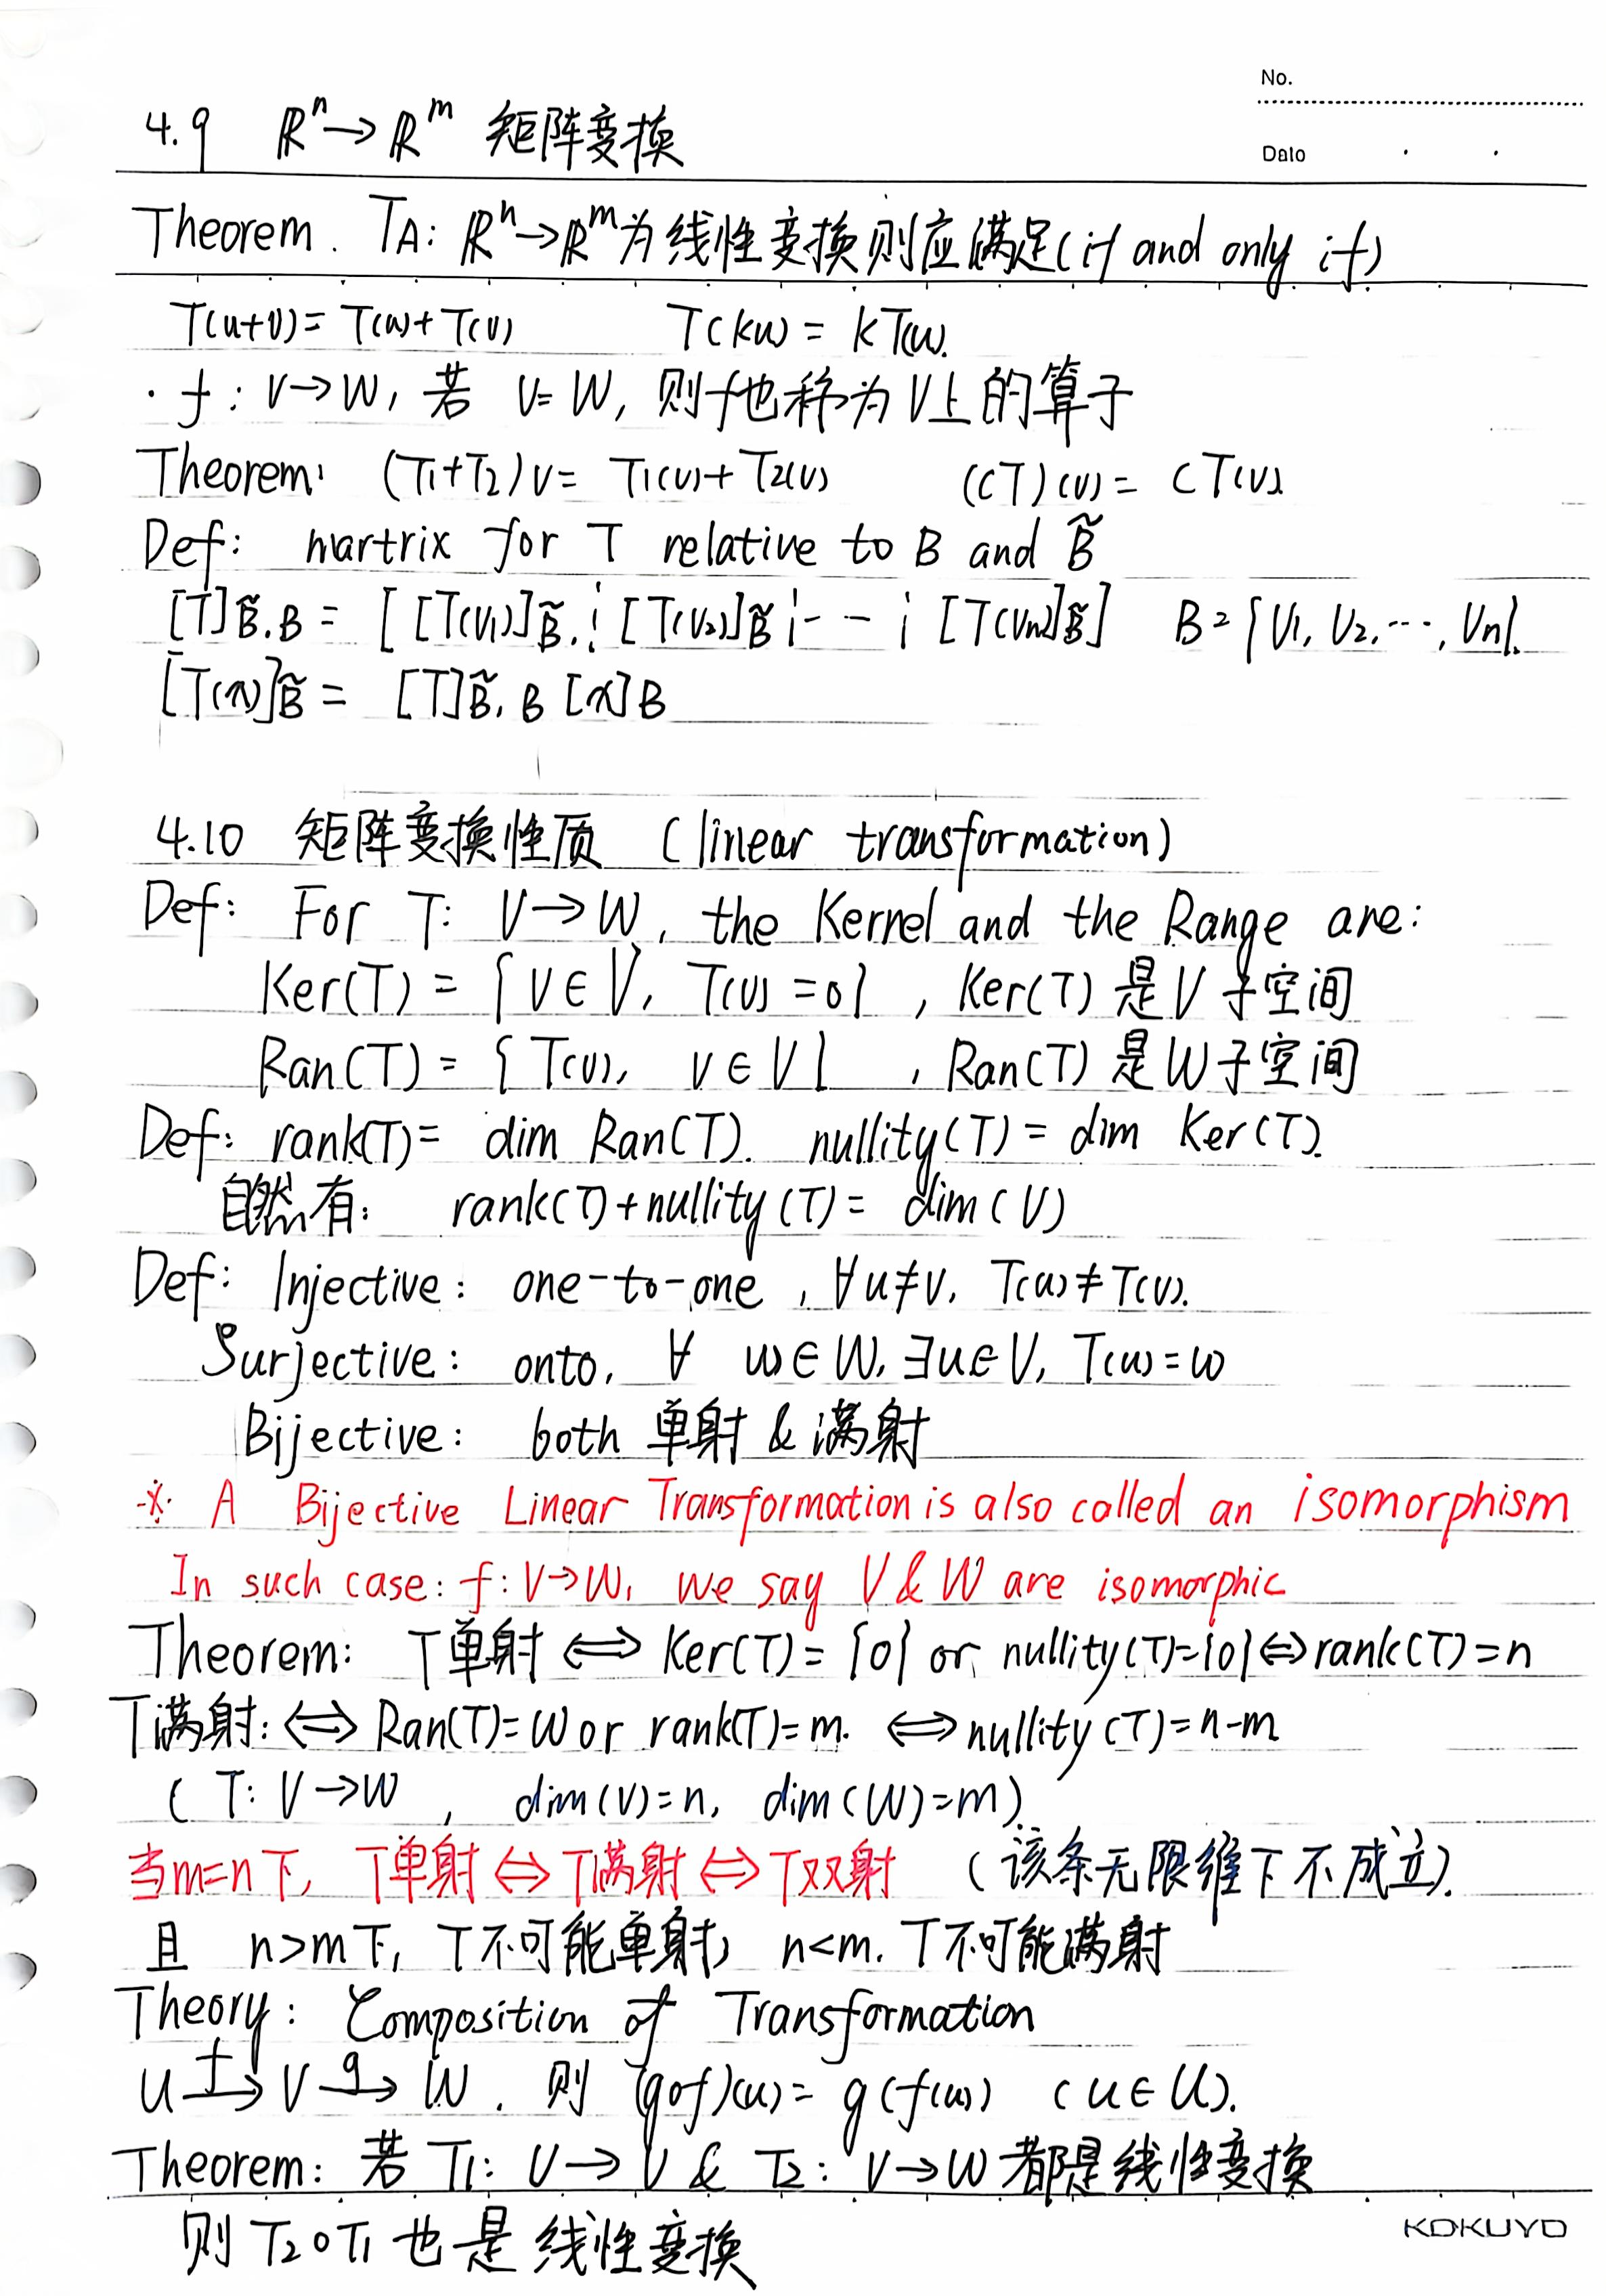 No.
Date
4.9 ℝⁿ→ℝᵐ 矩阵变换
Theorem. TA: ℝⁿ→ℝᵐ为线性变换则应满足(if and only if)
T(u+v)= T(u)+T(v) T(ku) = kT(u).
· f: V→W, 若 V=W, 则f也称为V上的算子
Theorem: (T1+T2)v= T1(v)+T2(v) (cT)(v)= cT(v)
Def: martrix for T relative to B and B̃
[T]B̃.B = [ [T(v1)]B̃ ¦ [T(v2)]B̃ ¦ -- ¦ [T(vn)]B̃ ] B={v1, v2, ···, vn}.
[T(x)]B̃ = [T]B̃.B [x]B
4.10 矩阵变换性质 (linear transformation)
Def: For T: V→W, the Kernel and the Range are:
Ker(T) = {v∈V, T(v)=0} , Ker(T)是V子空间
Ran(T) = {T(v), v∈V} , Ran(T)是W子空间
Def: rank(T)= dim Ran(T). nullity(T)= dim Ker(T).
自然有: rank(T)+nullity(T)= dim(V)
Def: Injective: one-to-one , ∀u≠v, T(u)≠T(v).
Surjective: onto, ∀ w∈W, ∃u∈V, T(u)=w
Bijective: both 单射 & 满射
※ A Bijective Linear Transformation is also called an isomorphism
In such case: f: V→W, we say V & W are isomorphic
Theorem: T单射 ⟺ Ker(T)= {0} or nullity(T)={0}⟺rank(T)=n
T满射: ⟺ Ran(T)=W or rank(T)=m. ⟺nullity(T)=n-m
( T: V→W , dim(V)=n, dim(W)=m).
当m=n下, T单射⟺T满射⟺T双射 (该条无限维下不成立).
且 n>m下, T不可能单射, n<m. T不可能满射
Theory: Composition of Transformation
U —f→ V —g→ W. 则 (g∘f)(u)= g(f(u)) (u∈U).
Theorem: 若 T1: U→V & T2: V→W 都是线性变换
则 T2∘T1 也是线性变换
KOKUYO